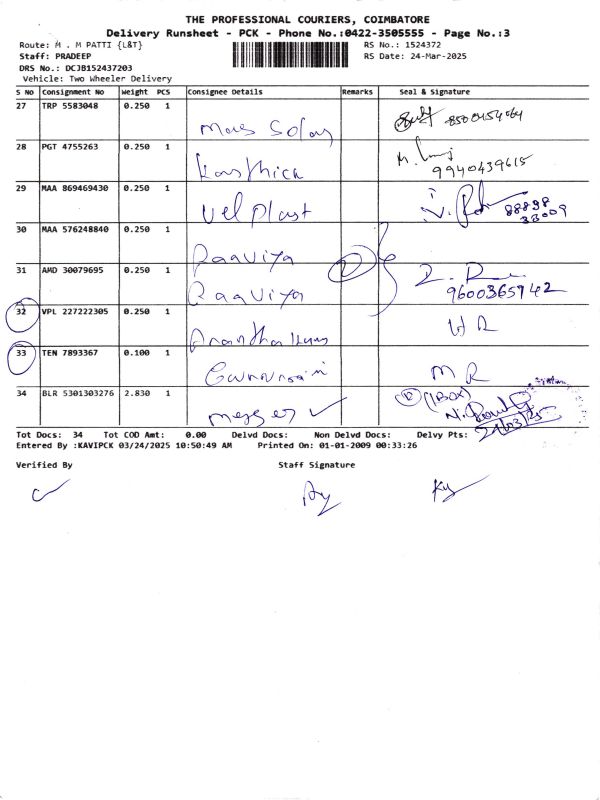 THE PROFESSIONAL COURIERS, COIMBATORE
Delivery Runsheet - PCK - Phone No.:0422-3505555 - Page No.:3
Route: M . M PATTI {L&T} RS No.: 1524372
Staff: PRADEEP RS Date: 24-Mar-2025
DRS No.: DCJB152437203
Vehicle: Two Wheeler Delivery
S NO Consignment No Weight PCS Consignee Details Remarks Seal & Signature
27 TRP 5583048 0.250 1
Mars Solar
28 PGT 4755263 0.250 1
Karthick 9940439615
29 MAA 869469430 0.250 1
Vel plast 88898 33009
30 MAA 576248840 0.250 1
Raaviya
31 AMD 30079695 0.250 1
Raaviya 9600365942
32 VPL 227222305 0.250 1
H R
33 TEN 7893367 0.100 1
M R
34 BLR 5301303276 2.830 1 (1BOX)
24/03/25
Tot Docs: 34 Tot COD Amt: 0.00 Delvd Docs: Non Delvd Docs: Delvy Pts:
Entered By :KAVIPCK 03/24/2025 10:50:49 AM Printed On: 01-01-2009 00:33:26
Verified By Staff Signature